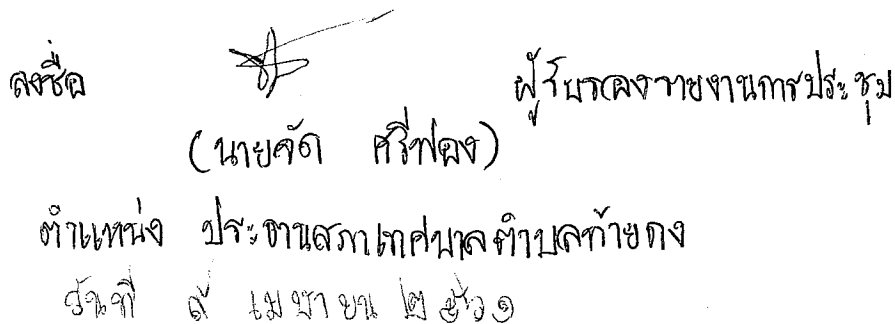 ลงชื่อ ผู้รับรองรายงานการประชุม
(นายจัด ศรีฟอง)
ตำแหน่ง ประธานสภาเทศบาลตำบลท้ายดง
วันที่ ๙ เมษายน ๒๕๖๑